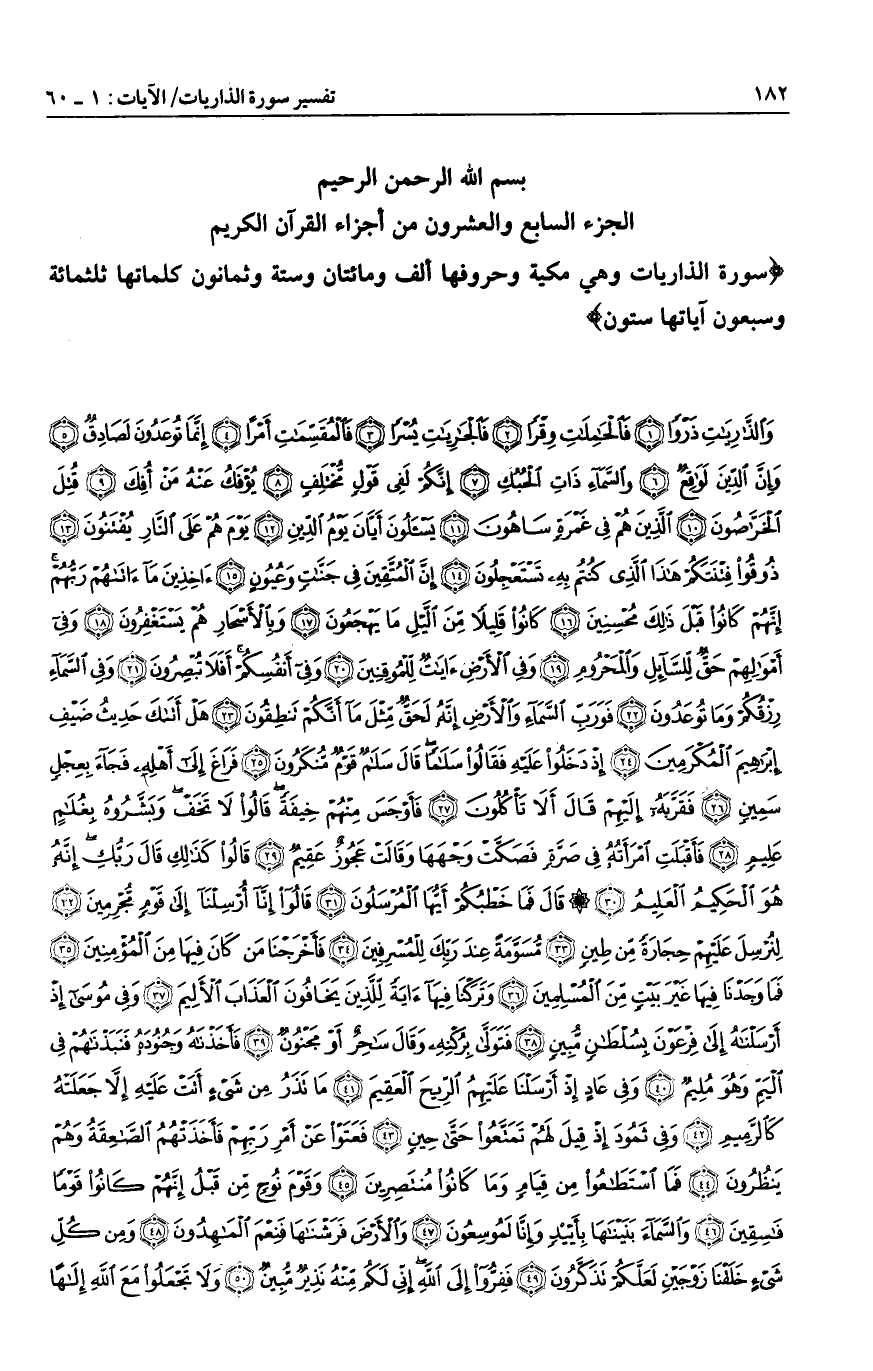 ١٨٢ تفسير سورة الذاريات/ الآيات: ١ ـ ٦٠
بسم الله الرحمن الرحيم
الجزء السابع والعشرون من أجزاء القرآن الكريم
﴿سورة الذاريات وهي مكية وحروفها ألف ومائتان وستة وثمانون كلماتها ثلثمائة
وسبعون آياتها ستون﴾
وَالذَّارِيَاتِ ذَرْوًا ﴿١﴾ فَالْحَامِلَاتِ وِقْرًا ﴿٢﴾ فَالْجَارِيَاتِ يُسْرًا ﴿٣﴾ فَالْمُقَسِّمَاتِ أَمْرًا ﴿٤﴾ إِنَّمَا تُوعَدُونَ لَصَادِقٌ ﴿٥﴾
وَإِنَّ الدِّينَ لَوَاقِعٌ ﴿٦﴾ وَالسَّمَاءِ ذَاتِ الْحُبُكِ ﴿٧﴾ إِنَّكُمْ لَفِي قَوْلٍ مُّخْتَلِفٍ ﴿٨﴾ يُؤْفَكُ عَنْهُ مَنْ أُفِكَ ﴿٩﴾ قُتِلَ
الْخَرَّاصُونَ ﴿١٠﴾ الَّذِينَ هُمْ فِي غَمْرَةٍ سَاهُونَ ﴿١١﴾ يَسْـَٔلُونَ أَيَّانَ يَوْمُ الدِّينِ ﴿١٢﴾ يَوْمَ هُمْ عَلَى النَّارِ يُفْتَنُونَ ﴿١٣﴾
ذُوقُوا فِتْنَتَكُمْ هَٰذَا الَّذِي كُنتُم بِهِ تَسْتَعْجِلُونَ ﴿١٤﴾ إِنَّ الْمُتَّقِينَ فِي جَنَّاتٍ وَعُيُونٍ ﴿١٥﴾ ءَاخِذِينَ مَا ءَاتَاهُمْ رَبُّهُمْ ۚ
إِنَّهُمْ كَانُوا قَبْلَ ذَٰلِكَ مُحْسِنِينَ ﴿١٦﴾ كَانُوا قَلِيلًا مِّنَ الَّيْلِ مَا يَهْجَعُونَ ﴿١٧﴾ وَبِالْأَسْحَارِ هُمْ يَسْتَغْفِرُونَ ﴿١٨﴾ وَفِي
أَمْوَالِهِمْ حَقٌّ لِّلسَّائِلِ وَالْمَحْرُومِ ﴿١٩﴾ وَفِي الْأَرْضِ ءَايَاتٌ لِّلْمُوقِنِينَ ﴿٢٠﴾ وَفِي أَنفُسِكُمْ ۚ أَفَلَا تُبْصِرُونَ ﴿٢١﴾ وَفِي السَّمَاءِ
رِزْقُكُمْ وَمَا تُوعَدُونَ ﴿٢٢﴾ فَوَرَبِّ السَّمَاءِ وَالْأَرْضِ إِنَّهُ لَحَقٌّ مِّثْلَ مَا أَنَّكُمْ تَنطِقُونَ ﴿٢٣﴾ هَلْ أَتَاكَ حَدِيثُ ضَيْفِ
إِبْرَاهِيمَ الْمُكْرَمِينَ ﴿٢٤﴾ إِذْ دَخَلُوا عَلَيْهِ فَقَالُوا سَلَامًا ۖ قَالَ سَلَامٌ قَوْمٌ مُّنكَرُونَ ﴿٢٥﴾ فَرَاغَ إِلَىٰ أَهْلِهِ فَجَاءَ بِعِجْلٍ
سَمِينٍ ﴿٢٦﴾ فَقَرَّبَهُ إِلَيْهِمْ قَالَ أَلَا تَأْكُلُونَ ﴿٢٧﴾ فَأَوْجَسَ مِنْهُمْ خِيفَةً ۖ قَالُوا لَا تَخَفْ ۖ وَبَشَّرُوهُ بِغُلَامٍ
عَلِيمٍ ﴿٢٨﴾ فَأَقْبَلَتِ امْرَأَتُهُ فِي صَرَّةٍ فَصَكَّتْ وَجْهَهَا وَقَالَتْ عَجُوزٌ عَقِيمٌ ﴿٢٩﴾ قَالُوا كَذَٰلِكِ قَالَ رَبُّكِ ۖ إِنَّهُ
هُوَ الْحَكِيمُ الْعَلِيمُ ﴿٣٠﴾ ۞ قَالَ فَمَا خَطْبُكُمْ أَيُّهَا الْمُرْسَلُونَ ﴿٣١﴾ قَالُوا إِنَّا أُرْسِلْنَا إِلَىٰ قَوْمٍ مُّجْرِمِينَ ﴿٣٢﴾
لِنُرْسِلَ عَلَيْهِمْ حِجَارَةً مِّن طِينٍ ﴿٣٣﴾ مُّسَوَّمَةً عِندَ رَبِّكَ لِلْمُسْرِفِينَ ﴿٣٤﴾ فَأَخْرَجْنَا مَن كَانَ فِيهَا مِنَ الْمُؤْمِنِينَ ﴿٣٥﴾
فَمَا وَجَدْنَا فِيهَا غَيْرَ بَيْتٍ مِّنَ الْمُسْلِمِينَ ﴿٣٦﴾ وَتَرَكْنَا فِيهَا ءَايَةً لِّلَّذِينَ يَخَافُونَ الْعَذَابَ الْأَلِيمَ ﴿٣٧﴾ وَفِي مُوسَىٰ إِذْ
أَرْسَلْنَاهُ إِلَىٰ فِرْعَوْنَ بِسُلْطَانٍ مُّبِينٍ ﴿٣٨﴾ فَتَوَلَّىٰ بِرُكْنِهِ وَقَالَ سَاحِرٌ أَوْ مَجْنُونٌ ﴿٣٩﴾ فَأَخَذْنَاهُ وَجُنُودَهُ فَنَبَذْنَاهُمْ فِي
الْيَمِّ وَهُوَ مُلِيمٌ ﴿٤٠﴾ وَفِي عَادٍ إِذْ أَرْسَلْنَا عَلَيْهِمُ الرِّيحَ الْعَقِيمَ ﴿٤١﴾ مَا تَذَرُ مِن شَيْءٍ أَتَتْ عَلَيْهِ إِلَّا جَعَلَتْهُ
كَالرَّمِيمِ ﴿٤٢﴾ وَفِي ثَمُودَ إِذْ قِيلَ لَهُمْ تَمَتَّعُوا حَتَّىٰ حِينٍ ﴿٤٣﴾ فَعَتَوْا عَنْ أَمْرِ رَبِّهِمْ فَأَخَذَتْهُمُ الصَّاعِقَةُ وَهُمْ
يَنظُرُونَ ﴿٤٤﴾ فَمَا اسْتَطَاعُوا مِن قِيَامٍ وَمَا كَانُوا مُنتَصِرِينَ ﴿٤٥﴾ وَقَوْمَ نُوحٍ مِّن قَبْلُ إِنَّهُمْ كَانُوا قَوْمًا
فَاسِقِينَ ﴿٤٦﴾ وَالسَّمَاءَ بَنَيْنَاهَا بِأَيْيْدٍ وَإِنَّا لَمُوسِعُونَ ﴿٤٧﴾ وَالْأَرْضَ فَرَشْنَاهَا فَنِعْمَ الْمَاهِدُونَ ﴿٤٨﴾ وَمِن كُلِّ
شَيْءٍ خَلَقْنَا زَوْجَيْنِ لَعَلَّكُمْ تَذَكَّرُونَ ﴿٤٩﴾ فَفِرُّوا إِلَى اللَّهِ ۖ إِنِّي لَكُم مِّنْهُ نَذِيرٌ مُّبِينٌ ﴿٥٠﴾ وَلَا تَجْعَلُوا مَعَ اللَّهِ إِلَٰهًا